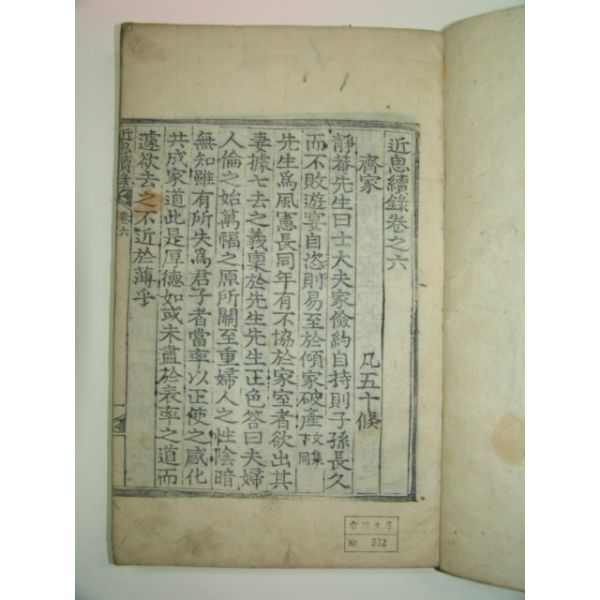 近思續錄卷之六
齊家 凡五十條
靜菴先生曰士大夫家儉約自持則子孫長久
而不敗遊宴自恣則易至於傾家破産 文集下同
先生爲風憲長同年有不協於家室者欲出其
妻據七去之義稟於先生先生正色答曰夫婦
人倫之始萬福之原所關至重婦人之性陰暗
無知雖有所失爲君子者當率以正使之感化
共成家道此是厚德如或未盡於表率之道而
遽欲去之不近於薄乎
近思續錄 卷六
No 332